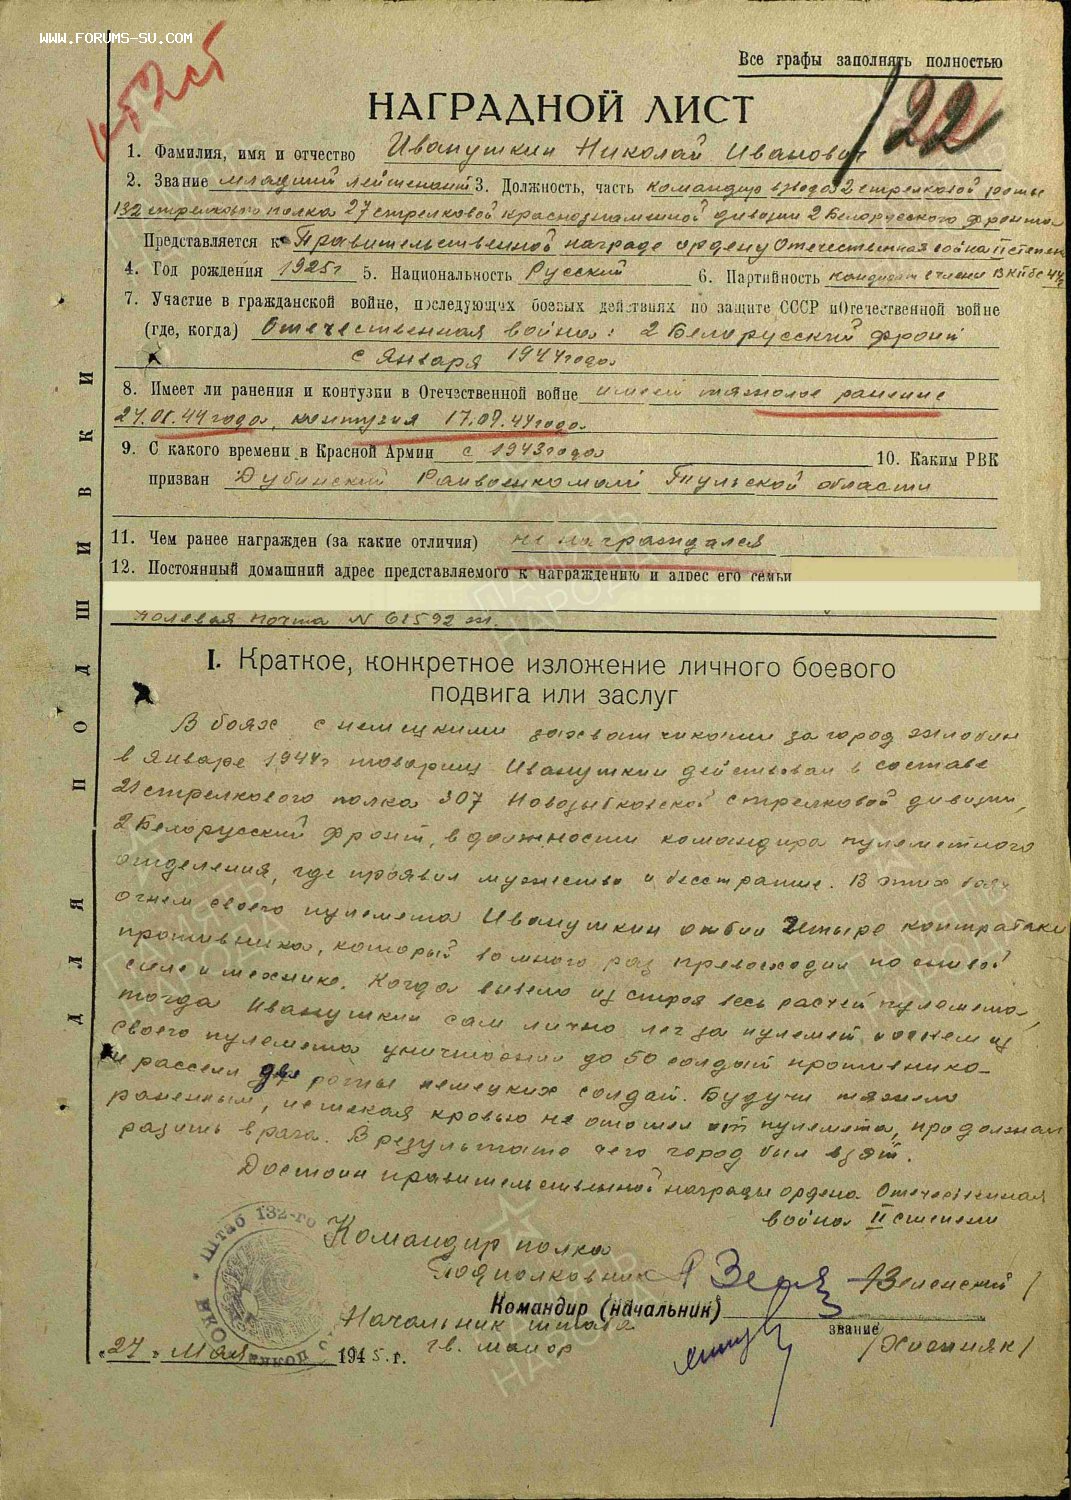 WWW.FORUMS-SU.COM
Все графы заполнять полностью
122
НАГРАДНОЙ ЛИСТ
1. Фамилия, имя и отчество Иванушкин Николай Иванович
2. Звание младший лейтенант 3. Должность, часть командир взвода 2 стрелковой роты
132 стрелкового полка 27 стрелковой краснознаменной дивизии 2 Белорусского фронта
Представляется к Правительственной награде ордену Отечественная война II степени
4. Год рождения 1925 г 5. Национальность Русский 6. Партийность кандидат в члены ВКПбс 44г
7. Участие в гражданской войне, последующих боевых действиях по защите СССР и Отечественной войне
(где, когда) Отечественная война: 2 Белорусский фронт
с января 1944 года
8. Имеет ли ранения и контузии в Отечественной войне имеет тяжолое ранение
27.01.44 года, контузия 17.09.44 года
9. С какого времени в Красной Армии с 1943 года 10. Каким РВК
призван Дубинский Райвоенкомат Тульской области
11. Чем ранее награжден (за какие отличия) не награждался
12. Постоянный домашний адрес представляемого к награждению и адрес его семьи
Полевая почта N 61592 ж.
I. Краткое, конкретное изложение личного боевого
подвига или заслуг
В боях с немецкими захватчиками за город жлобин
в январе 1944г товарищ Иванушкин действовал в составе
21 стрелкового полка 307 Новозыбковской стрелковой дивизии,
2 Белорусский фронт, в должности командира пулеметного
отделения, где проявил мужество и бесстрашие. В этих боях
огнем своего пулемета Иванушкин отбил четыре контратаки
противника, который во много раз превосходил по живой
силе и технике. Когда вывело из строя весь расчет пулемета,
тогда Иванушкин сам лично лег за пулемет и огнем из
своего пулемета уничтожил до 50 солдат противника
и рассеял две роты немецких солдат. Будучи тяжело
раненным, истекая кровью не отошел от пулемета, продолжал
разить врага. В результате чего город был взят.
Достоин правительственной награды ордена Отечественная
война II степени
Командир полка
Подполковник /Зеленский/
Командир (начальник)
звание
Начальник штаба
гв. майор /Хисиняк/
"27" мая 1945 г.
Штаб 132-го
ДЛЯ ПОДШИВКИ
ПАМЯТЬ НАРОДА